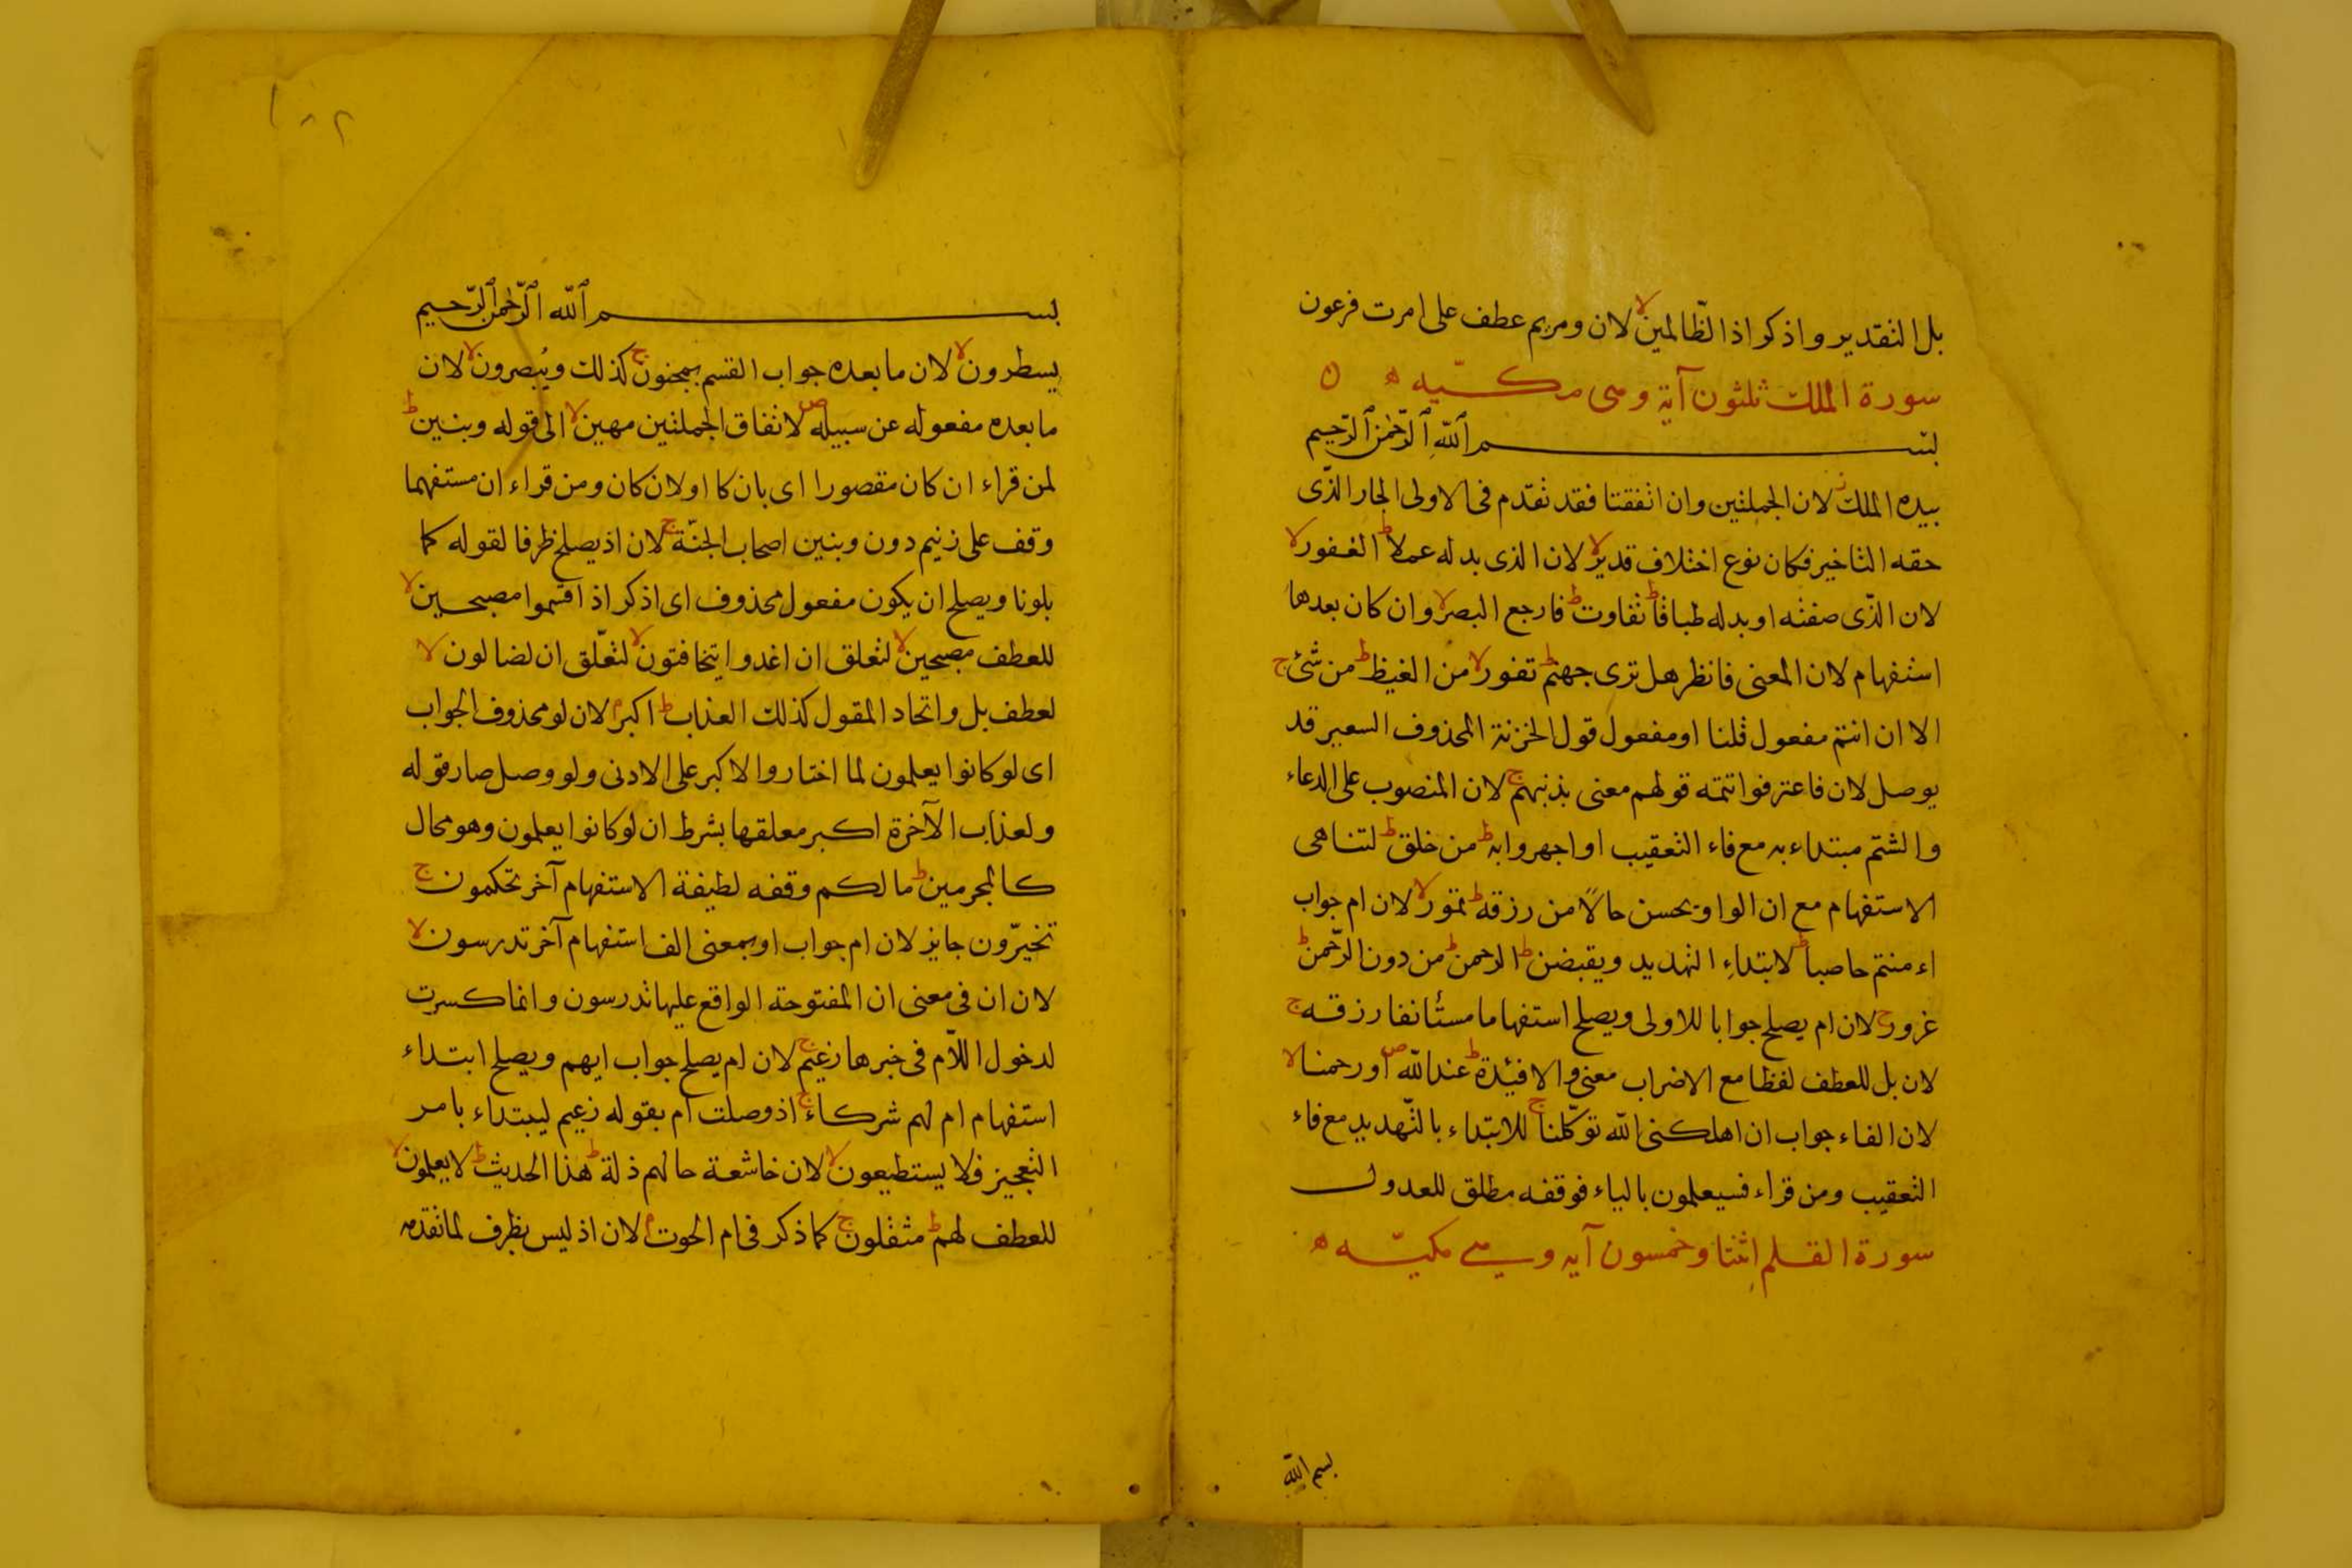 بل التقدير واذكر اذ الظّالمين لا لان ومريم عطف على امرت فرعون
سورة الملك ثلثون آية وهى مكّيه ه ٥
بسم ٱللهِ ٱلرّحمٰن ٱلرّحيم
بيده الملك ز لان الجملتين وان اتفقتا فقد تقدّم فى الاولى الجار الذّى
حقه التاخير فكان نوع اختلاف قدير لا لان الذى بدله عملا ط الغفور لا
لان الذّى صفته او بدله طباقا ط تفاوت ط فارجع البصر لا وان كان بعدها
استفهام لان المعنى فانظر هل ترى جهنم ط تفور لا من الغيظ ط من شئ ج
الا ان انتم مفعول قلنا او مفعول قول الخزنة المحذوف السعير قد
يوصل لان فاعترفوا تتمه قولهم معنى بذنبهم ج لان المنصوب على الدعاء
والشتم مبتداء به مع فاء التعقيب او اجهروا به ط من خلق ط لتناهى
الاستفهام مع ان الواو يحسن حالًا من رزقه ط تمور لا لان ام جواب
اء منتم حاصبا ط لابتداءِ التهديد ويقبضن ط الرحمن ط من دون الرّحمن ط
غرور ج لان ام يصلح جوابا للاولى ويصلح استفهاما مستأنفا رزقه ج
لان بل للعطف لفظا مع الاضراب معنى والافئدة ط عند الله ص او رحمنا لا
لان الفاء جواب ان اهلكنى الله توكّلنا ج للابتداء بالتّهديد مع فاء
التعقيب ومن قراء فسيعلمون بالياء فوقفه مطلق للعدول
سورة القلم اِثنتا وخمسون آيه وهى مكيّه ه
بسم الله
١٨٢
بسم ٱلله ٱلرّحمٰن ٱلرّحيم
يسطرون لا لان ما بعده جواب القسم بمجنون ج كذلك ويُبصرون لا لان
ما بعده مفعوله عن سبيله ص لاتفاق الجملتين مهين لا الى قوله وبنين ط
لمن قراء ان كان مقصورا اى بان كا او لان كان ومن قراء ان مستفهما
وقف على زنيم دون وبنين اصحاب الجنّة ج لان اذ يصلح ظرفا لقوله كما
بلونا ويصلح ان يكون مفعول محذوف اى اذكر اذ اقسموا مصبحين لا
للعطف مصبحين لا لتعلق ان اغدوا يتخافتون لا لتعّلق ان لضالون لا
لعطف بل واتحاد المقول كذلك العذاب ط اكبر م لان لو محذوف الجواب
اى لو كانوا يعلمون لما اختاروا الاكبر على الادنى ولو وصل صار قوله
ولعذاب الآخرة اكبر معلقها بشرط ان لو كانوا يعلمون وهو محال
كالمجرمين ط ما لكم وقفه لطيفة الاستفهام آخر تحكمون ج
تخيرّون جايز لان ام جواب او بمعنى الف استفهام آخر تدرسون لا
لان ان فى معنى ان المفتوحة الواقع عليها تدرسون وانما كسرت
لدخول اللاّم فى خبرها زعيم ج لان ام يصلح جواب ايهم ويصلح ابتداء
استفهام ام لهم شركاء ج اذ وصلت ام بقوله زعيم ليبتداء بامر
التعجيز فلا يستطيعون لا لان خاشعة حالهم ذلة ط هذا الحديث ط لا يعلمون لا
للعطف لهم ط مثقلون ج كما ذكر فى ام الحوت م لان اذ ليس بظرف لما تقدمه